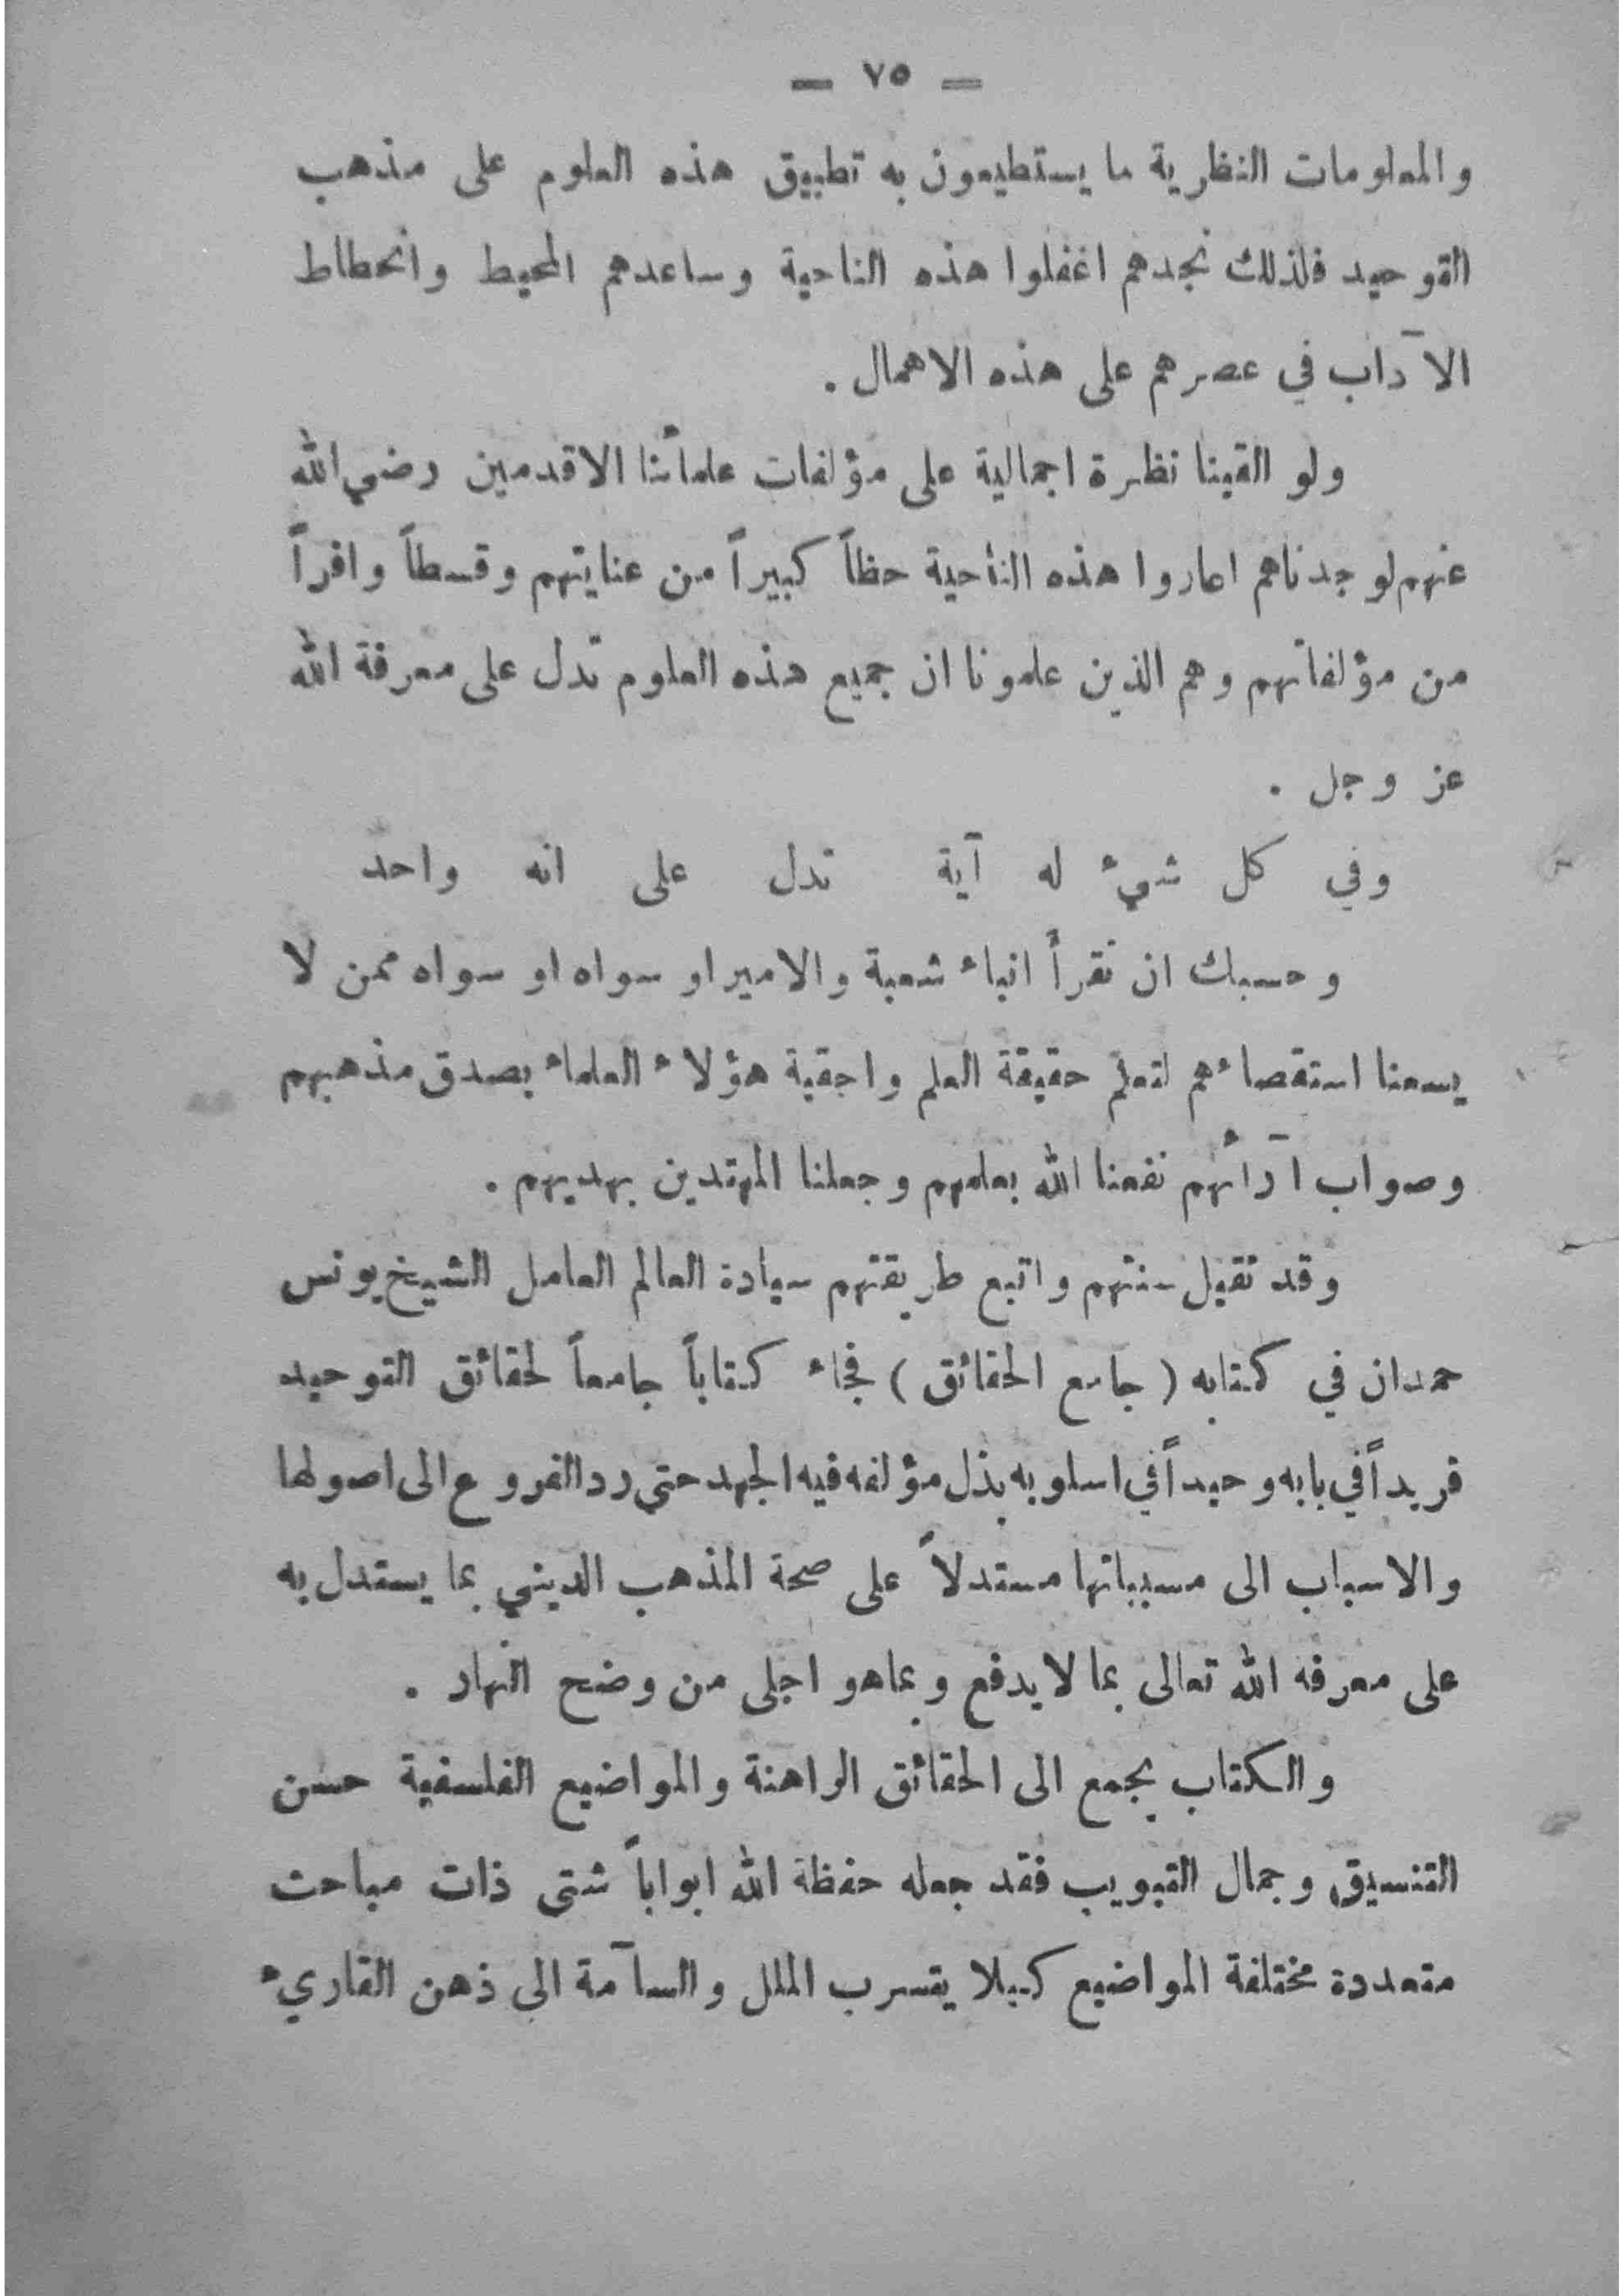 — ٧٥ —
والمعلومات النظرية ما يستطيعون به تطبيق هذه العلوم على مذهب
التوحيد فلذلك نجدهم اغفلوا هذه الناحية وساعدهم المحيط وانحطاط
الآداب في عصرهم على هذه الاهمال .
ولو القينا نظرة اجمالية على مؤلفات علمائنا الاقدمين رضي الله
عنهم لوجدناهم اعاروا هذه الناحية حظاً كبيراً من عنايتهم وقسطاً وافراً
من مؤلفاتهم وهم الذين علمونا ان جميع هذه العلوم تدل على معرفة الله
عز وجل .
وفي كل شيء له آية تدل على انه واحد
وحسبك ان تقرأ انباء شعبة والامير او سواه او سواه ممن لا
يسعنا استقصاءهم لتعلم حقيقة العلم واحقية هؤلاء العلماء بصدق مذهبهم
وصواب آرائهم نفعنا الله بعلمهم وجعلنا المهتدين بهديهم .
وقد تقيل سنتهم واتبع طريقتهم سيادة العالم العامل الشيخ يونس
حمدان في كتابه ( جامع الحقائق ) فجاء كتاباً جامعاً لحقائق التوحيد
فريداً في بابه وحيداً في اسلوبه بذل مؤلفه فيه الجهد حتى رد الفروع الى اصولها
والاسباب الى مسبباتها مستدلاً على صحة المذهب الديني بما يستدل به
على معرفه الله تعالى بما لا يدفع وبما هو اجلى من وضح النهار .
والكتاب يجمع الى الحقائق الراهنة والمواضيع الفلسفية حسن
التنسيق وجمال التبويب فقد جعله حفظة الله ابواباً شتى ذات مباحث
متعددة مختلفة المواضيع كيلا يتسرب الملل والسآمة الى ذهن القاريء